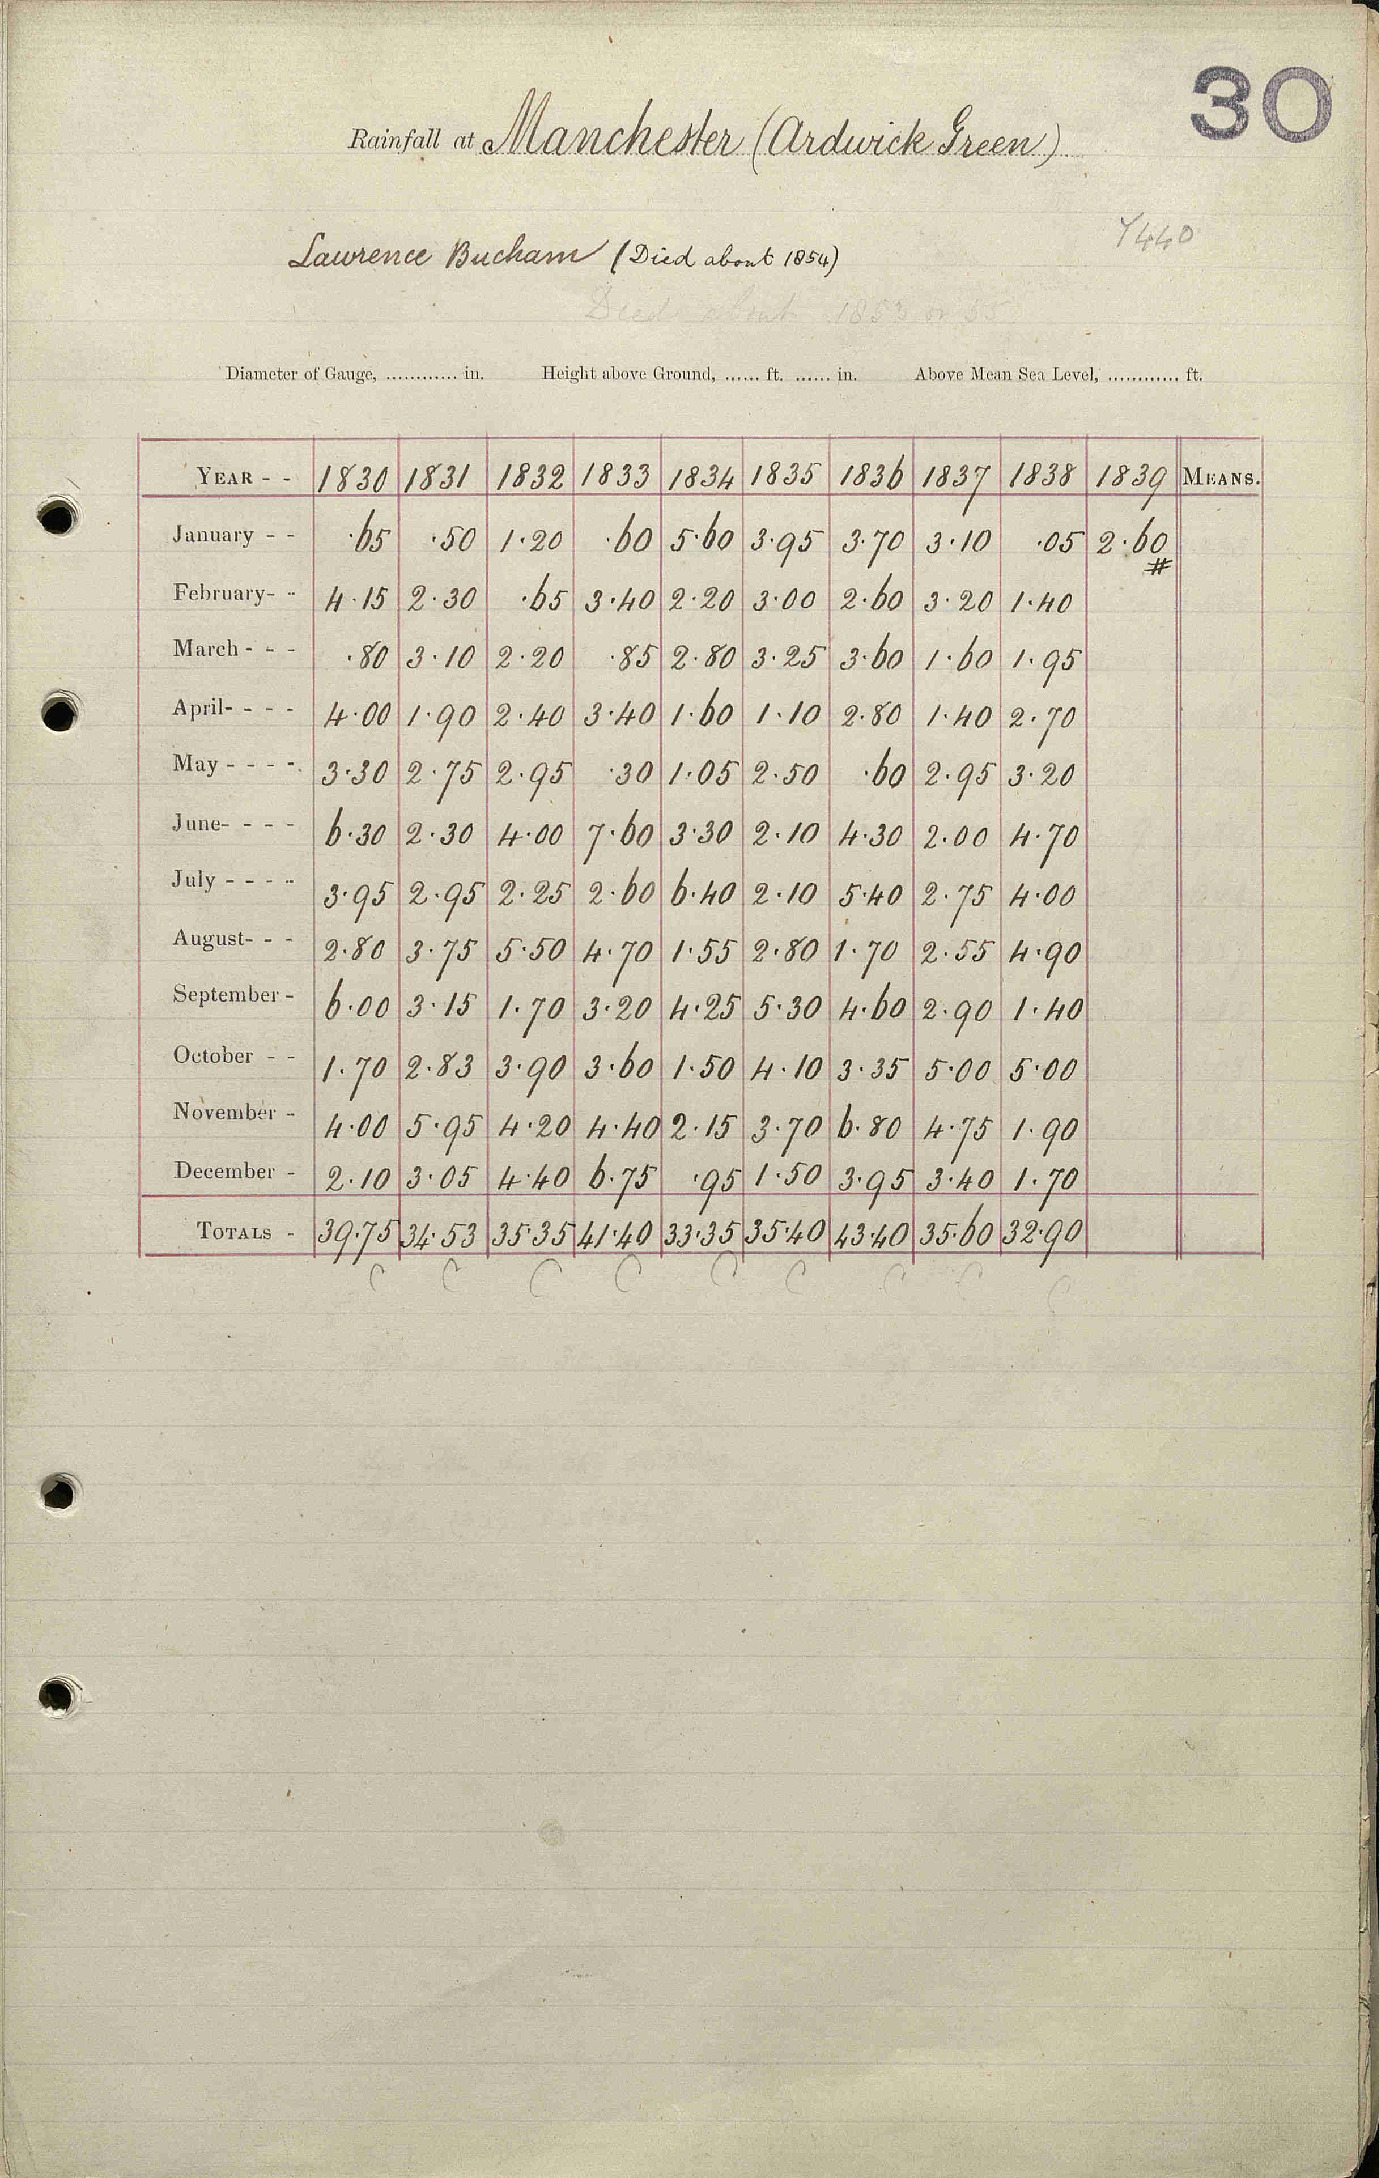 30
Rainfall at Manchester (Ardwick Green)
Y440
Lawrence Bucham (Died about 1854)
Died about 1853 or 55
Diameter of Gauge, ............ in. Height above Ground, ...... ft. ...... in. Above Mean Sea Level, ............ ft.
YEAR - - 1830 1831 1832 1833 1834 1835 1836 1837 1838 1839 MEANS.
January - - ·65 ·50 1·20 ·60 5·60 3·95 3·70 3·10 ·05 2·60
#
February- - 4·15 2·30 ·65 3·40 2·20 3·00 2·60 3·20 1·40
March - - - ·80 3·10 2·20 ·85 2·80 3·25 3·60 1·60 1·95
April- - - - 4·00 1·90 2·40 3·40 1·60 1·10 2·80 1·40 2·70
May - - - - 3·30 2·75 2·95 ·30 1·05 2·50 ·60 2·95 3·20
June- - - - 6·30 2·30 4·00 7·60 3·30 2·10 4·30 2·00 4·70
July - - - - 3·95 2·95 2·25 2·60 6·40 2·10 5·40 2·75 4·00
August- - - 2·80 3·75 5·50 4·70 1·55 2·80 1·70 2·55 4·90
September - 6·00 3·15 1·70 3·20 4·25 5·30 4·60 2·90 1·40
October - - 1·70 2·83 3·90 3·60 1·50 4·10 3·35 5·00 5·00
November - 4·00 5·95 4·20 4·40 2·15 3·70 6·80 4·75 1·90
December - 2·10 3·05 4·40 6·75 ·95 1·50 3·95 3·40 1·70
TOTALS - 39·75 34·53 35·35 41·40 33·35 35·40 43·40 35·60 32·90
C C C C C C C C C